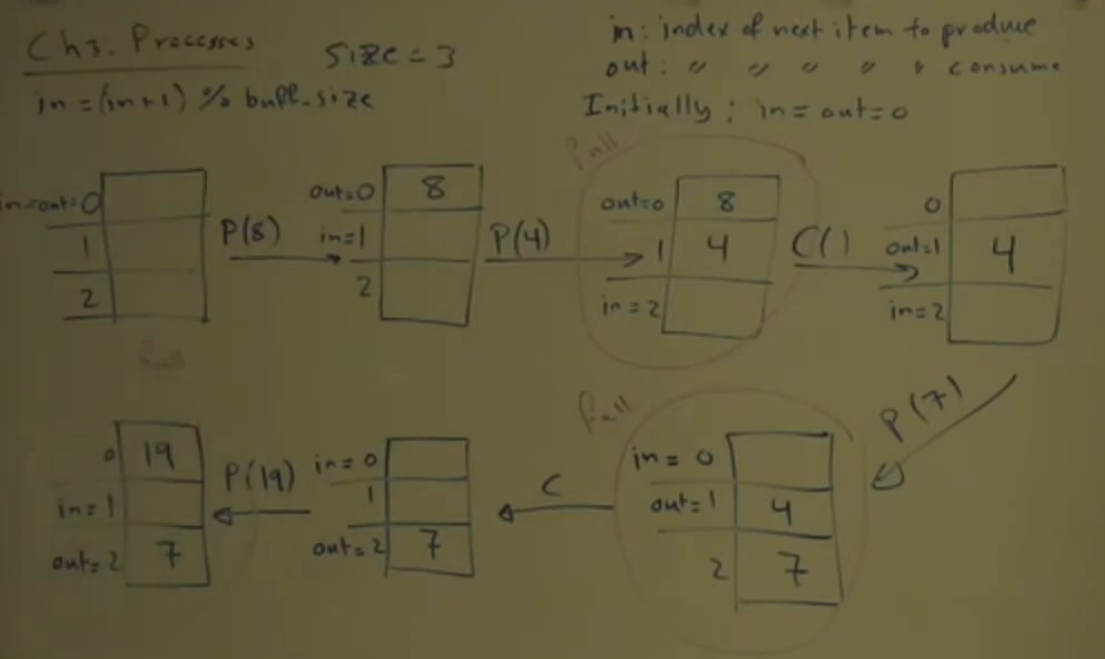 Ch3. Processes
Size = 3
in = (in+1) % buff_size
in: index of next item to produce
out: " " " " " consume
Initially: in = out = 0
full
in=out=0
1
2
P(8)
out=0 8
in=1
2
P(4)
out=0 8
1 4
in=2
C()
0
out=1 4
in=2
P(7)
full
in=0
out=1 4
2 7
C
in=0
1
out=2 7
P(19)
full
0 19
in=1
out=2 7